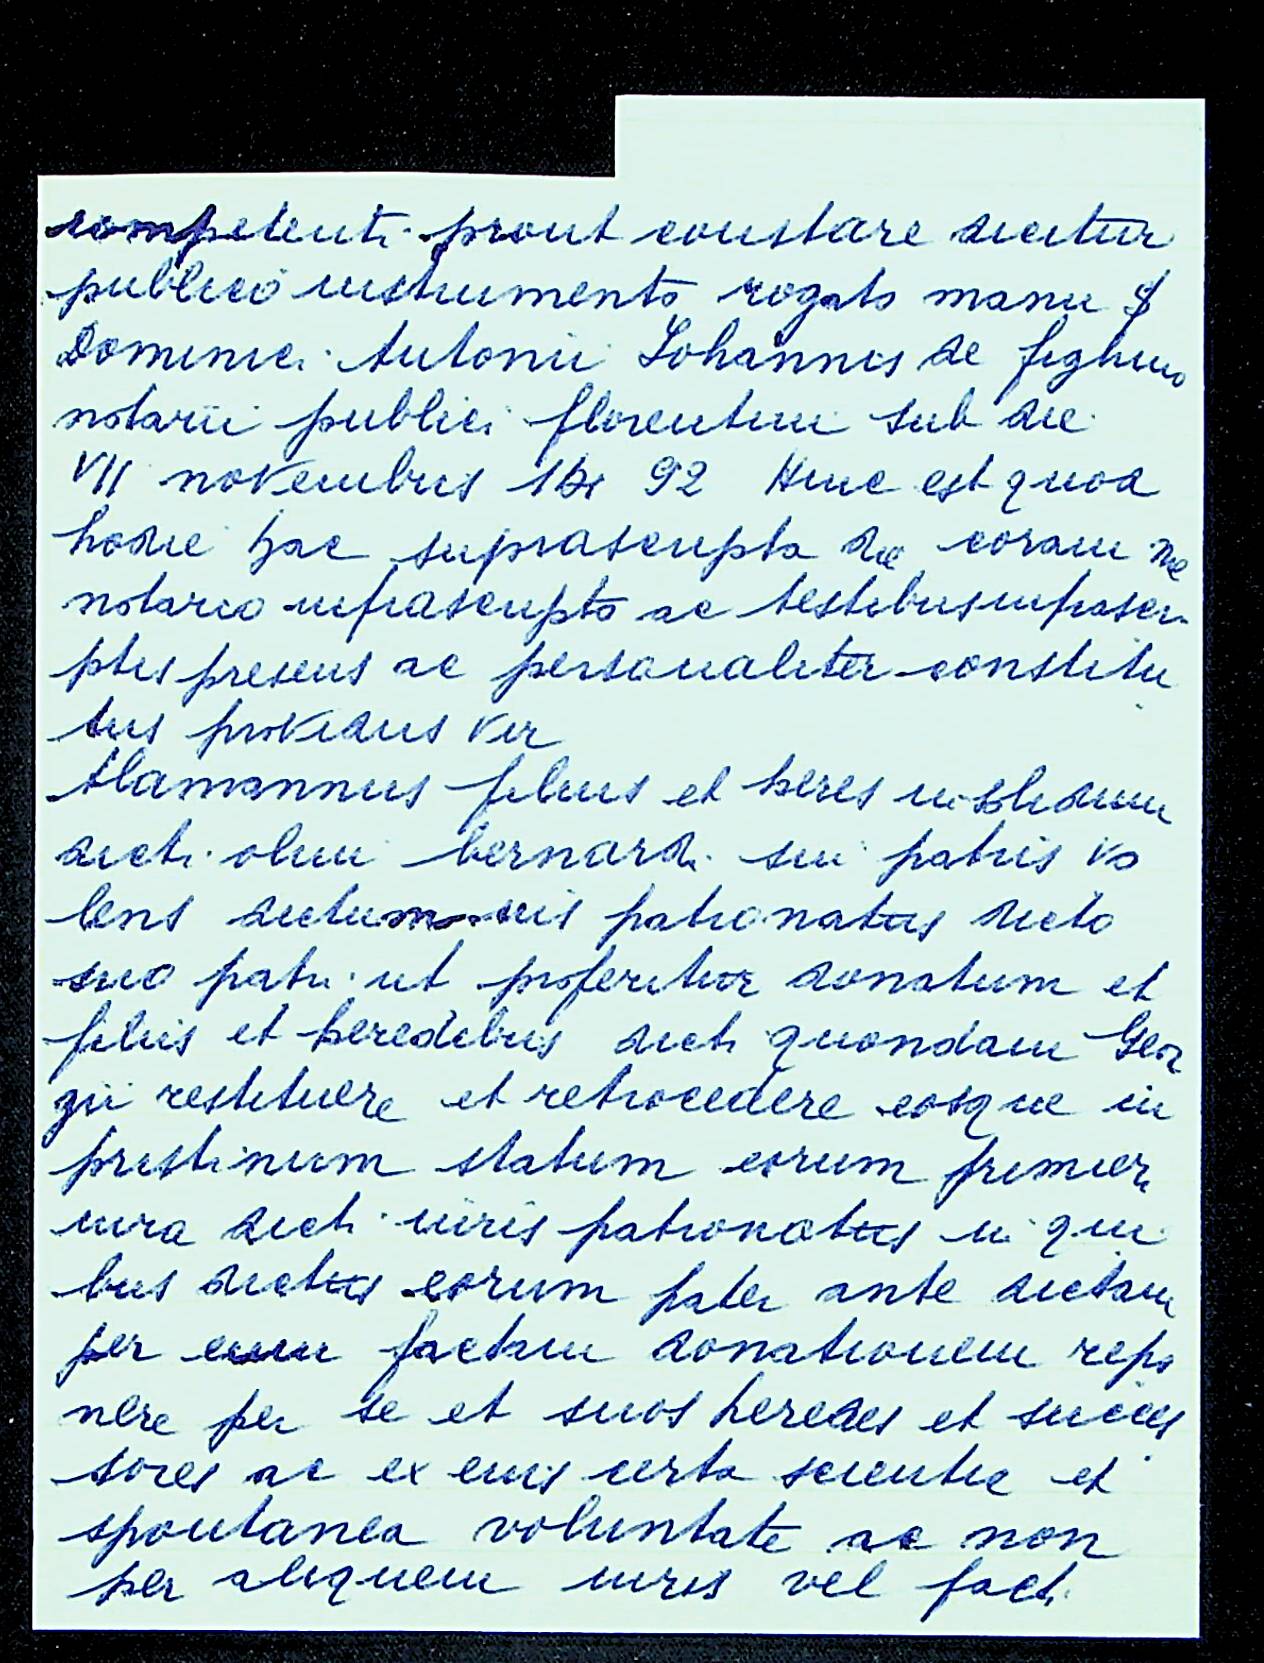 competenti prout constare dicitur
publico instrumento rogato manu S
Dominici Antonii Iohannis de fighino
notarii publici florentini sub die
VII novembris 92 Hinc est quod
hodie hac suprascripta die coram me
notario infrascripto ac testibus infrascri
ptis presens ac personaliter constitu
tus providus vir
Alamannus filius et heres in solidum
dicti olim bernardi sui patris vo
lens dictum ius patronatus dicto
suo patri ut profertur donatum et
filiis et heredibus dicti quondam Geor
gii restituere et retrocedere eosque in
pristinum statum eorum
iura dicti iuris patronatus in qui
bus dictus eorum pater ante dictam
per eum factam donationem repo
nere per se et suos heredes et succes
sores ac ex eius certa scientia et
spontanea voluntate ac non
per aliquem iuris vel facti